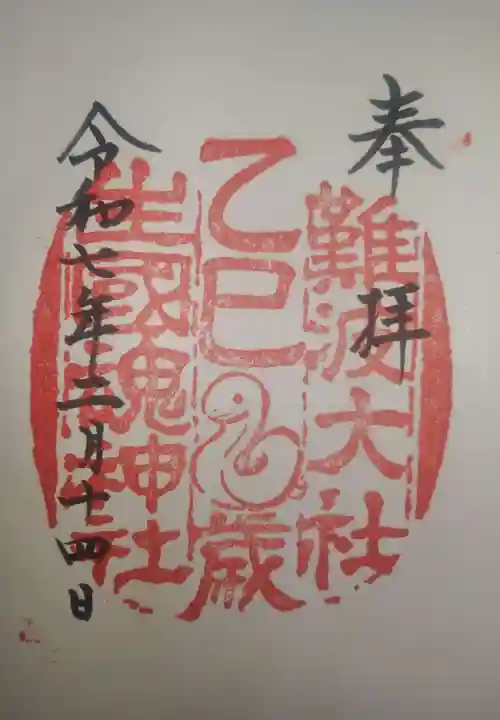 奉拝
難波大社
乙巳歳
生國魂神社
令和七年二月十四日